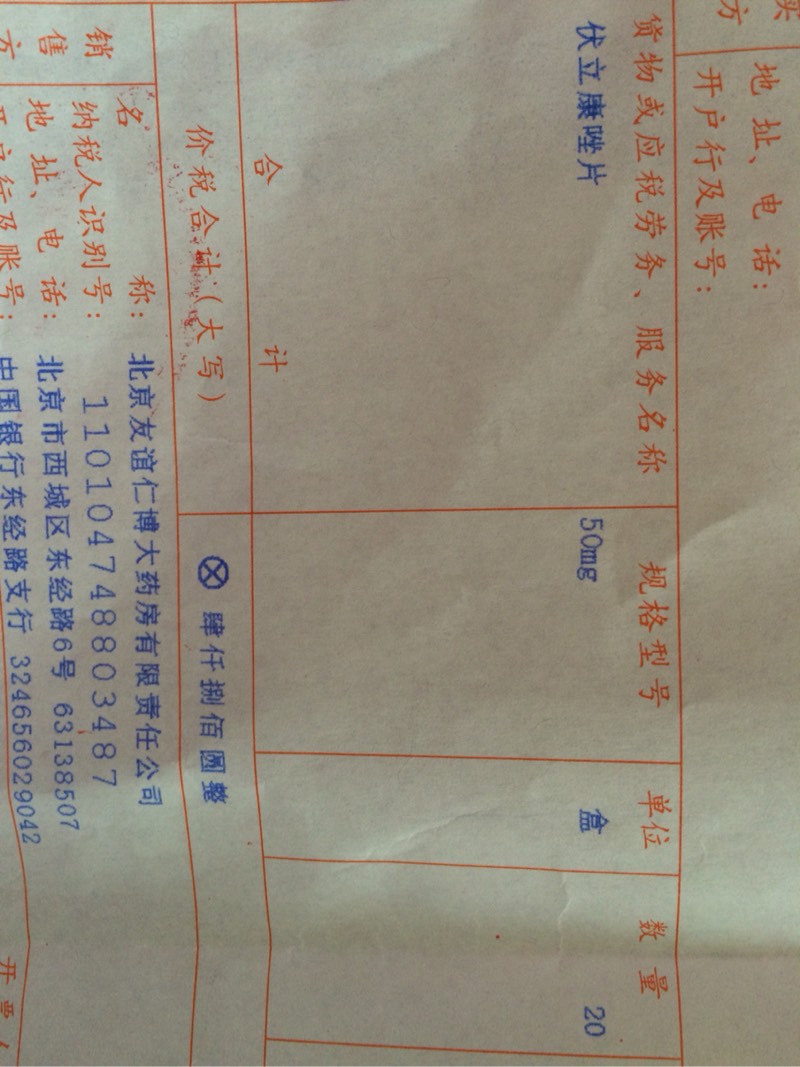 地址、电话:
开户行及账号:
货物或应税劳务、服务名称 规格型号 单位 数量
伏立康唑片 50mg 盒 20
合计
价税合计(大写) ⊗ 肆仟捌佰圆整
销售方
名称: 北京友谊仁博大药房有限责任公司
纳税人识别号: 110104748803487
地址、电话: 北京市西城区东经路6号 63138507
开户行及账号: 中国银行东经路支行 324656029042